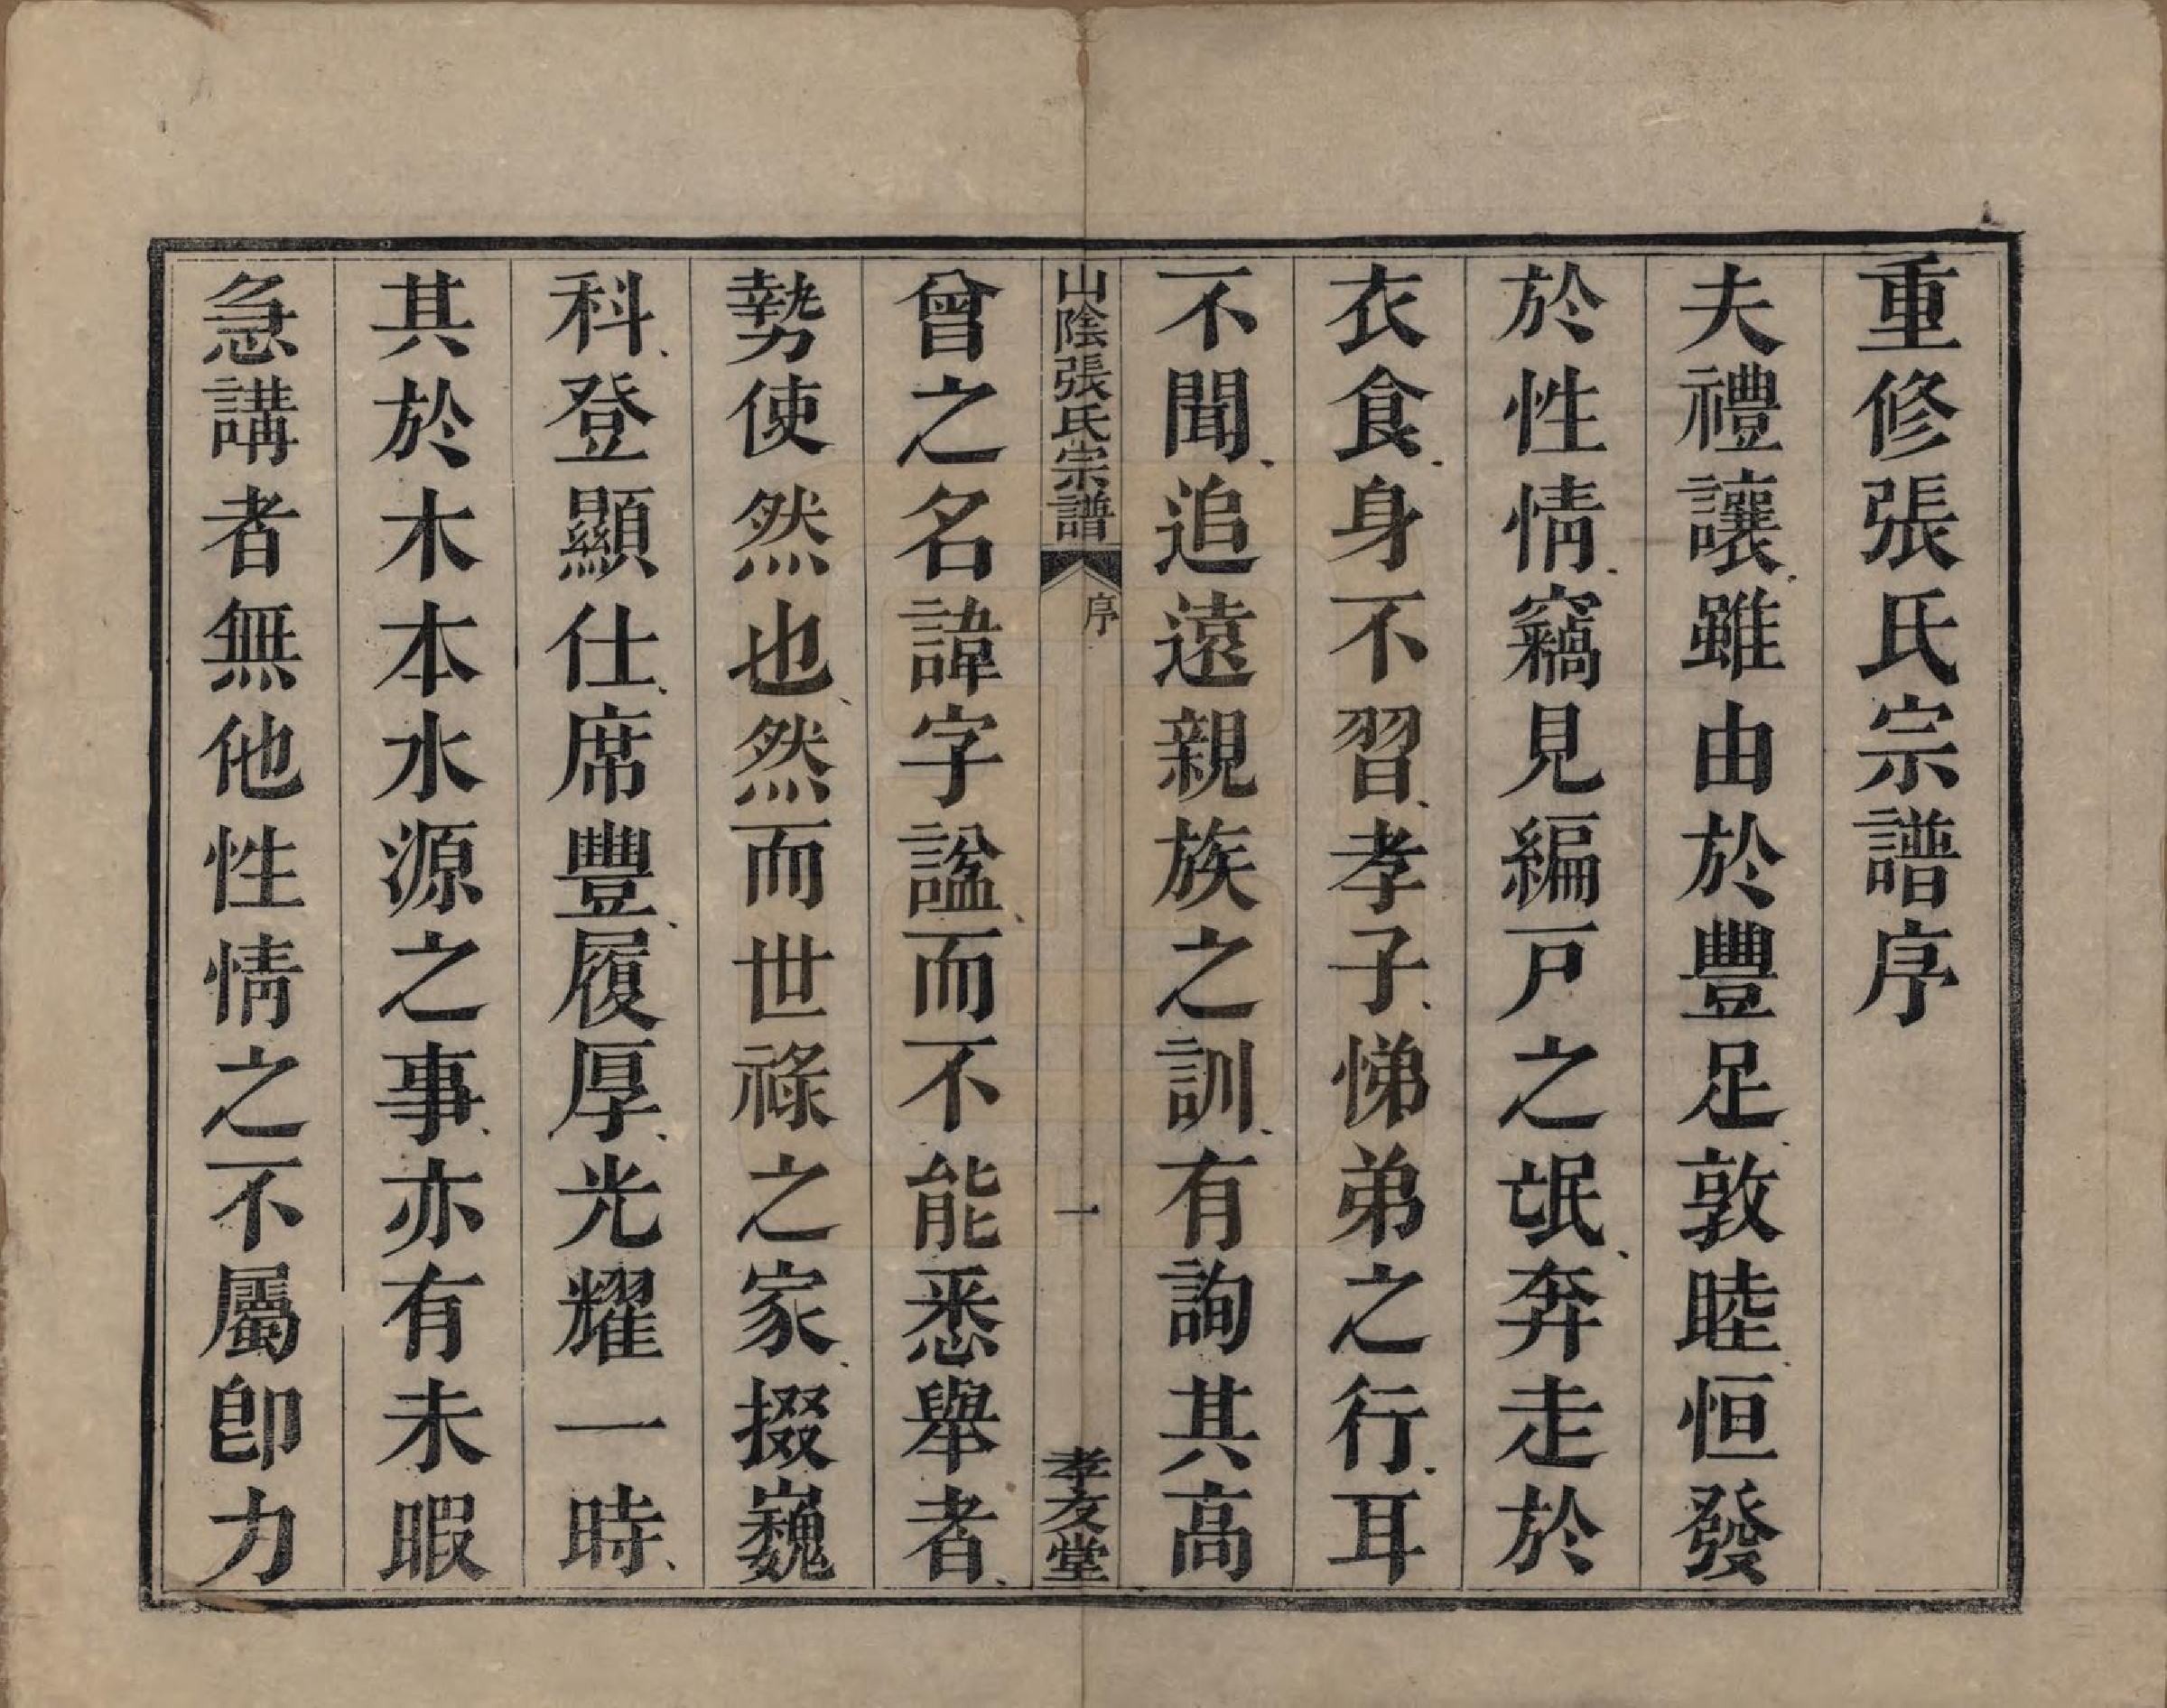 重修張氏宗譜序
夫禮讓、雖由於豐足、敦睦、恒發
於性情、竊見編戸之氓、奔走於
衣食、身不習、孝子、悌弟之行、耳
不聞、追遠親族之訓、有詢其高
山陰張氏宗譜 序 一 孝友堂
曾之名諱字諡、而不能悉舉者、
勢使然也、然而世祿之家、掇巍
科、登顯仕、席豐、履厚、光耀一時、
其於木本水源之事、亦有未暇
急講者無他性情之不屬卽力